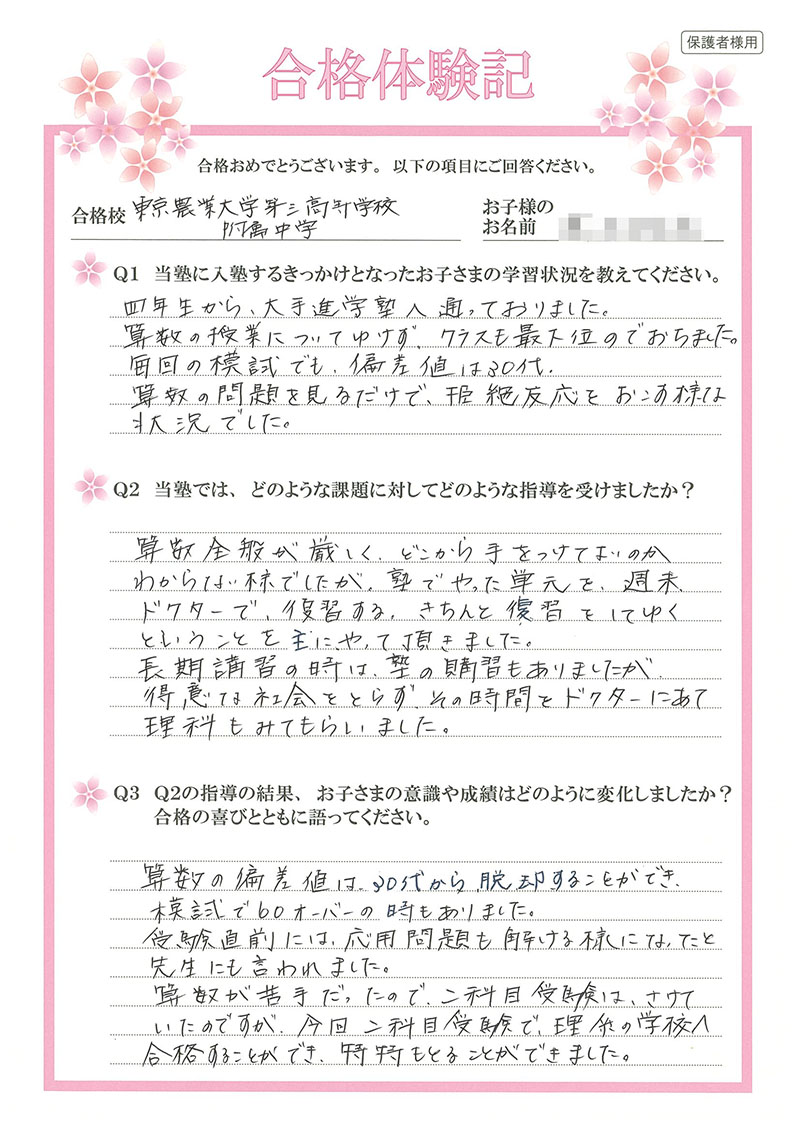 保護者様用
合格体験記
合格おめでとうございます。以下の項目にご回答ください。
合格校 東京農業大学第三高等学校
附属中学
お子様の
お名前
Q1 当塾に入塾するきっかけとなったお子さまの学習状況を教えてください。
四年生から、大手進学塾へ通っておりました。
算数の授業についてゆけず、クラスも最下位のでおちました。
毎回の模試でも、偏差値は30代。
算数の問題を見るだけで、拒絶反応をおこす様な
状況でした。
Q2 当塾では、どのような課題に対してどのような指導を受けましたか？
算数全般が厳しく、どこから手をつけてよいのか
わからない様でしたが、塾でやった単元を、週末
ドクターで、復習する。きちんと復習をしてゆく
ということを主に、やって頂きました。
長期講習の時は、塾の講習もありましたが、
得意な社会をとらず、その時間をドクターにあて
理科もみてもらいました。
Q3 Q2の指導の結果、お子さまの意識や成績はどのように変化しましたか？
合格の喜びとともに語ってください。
算数の偏差値は、30代から、脱却することができ、
模試で60オーバーの時もありました。
受験直前には、応用問題も解ける様になったと
先生にも言われました。
算数が苦手だったので、二科目受験は、さけて
いたのですが、今回二科目受験で、理系の学校へ
合格することができ、特待もとることができました。